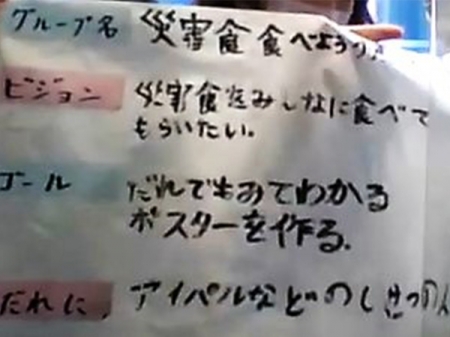 グループ名 災害食食べよう
ビジョン 災害食をみんなに食べて
もらいたい。
ゴール だれでもみてわかる
ポスターを作る。
だれに、アイパルなどのしせつの人